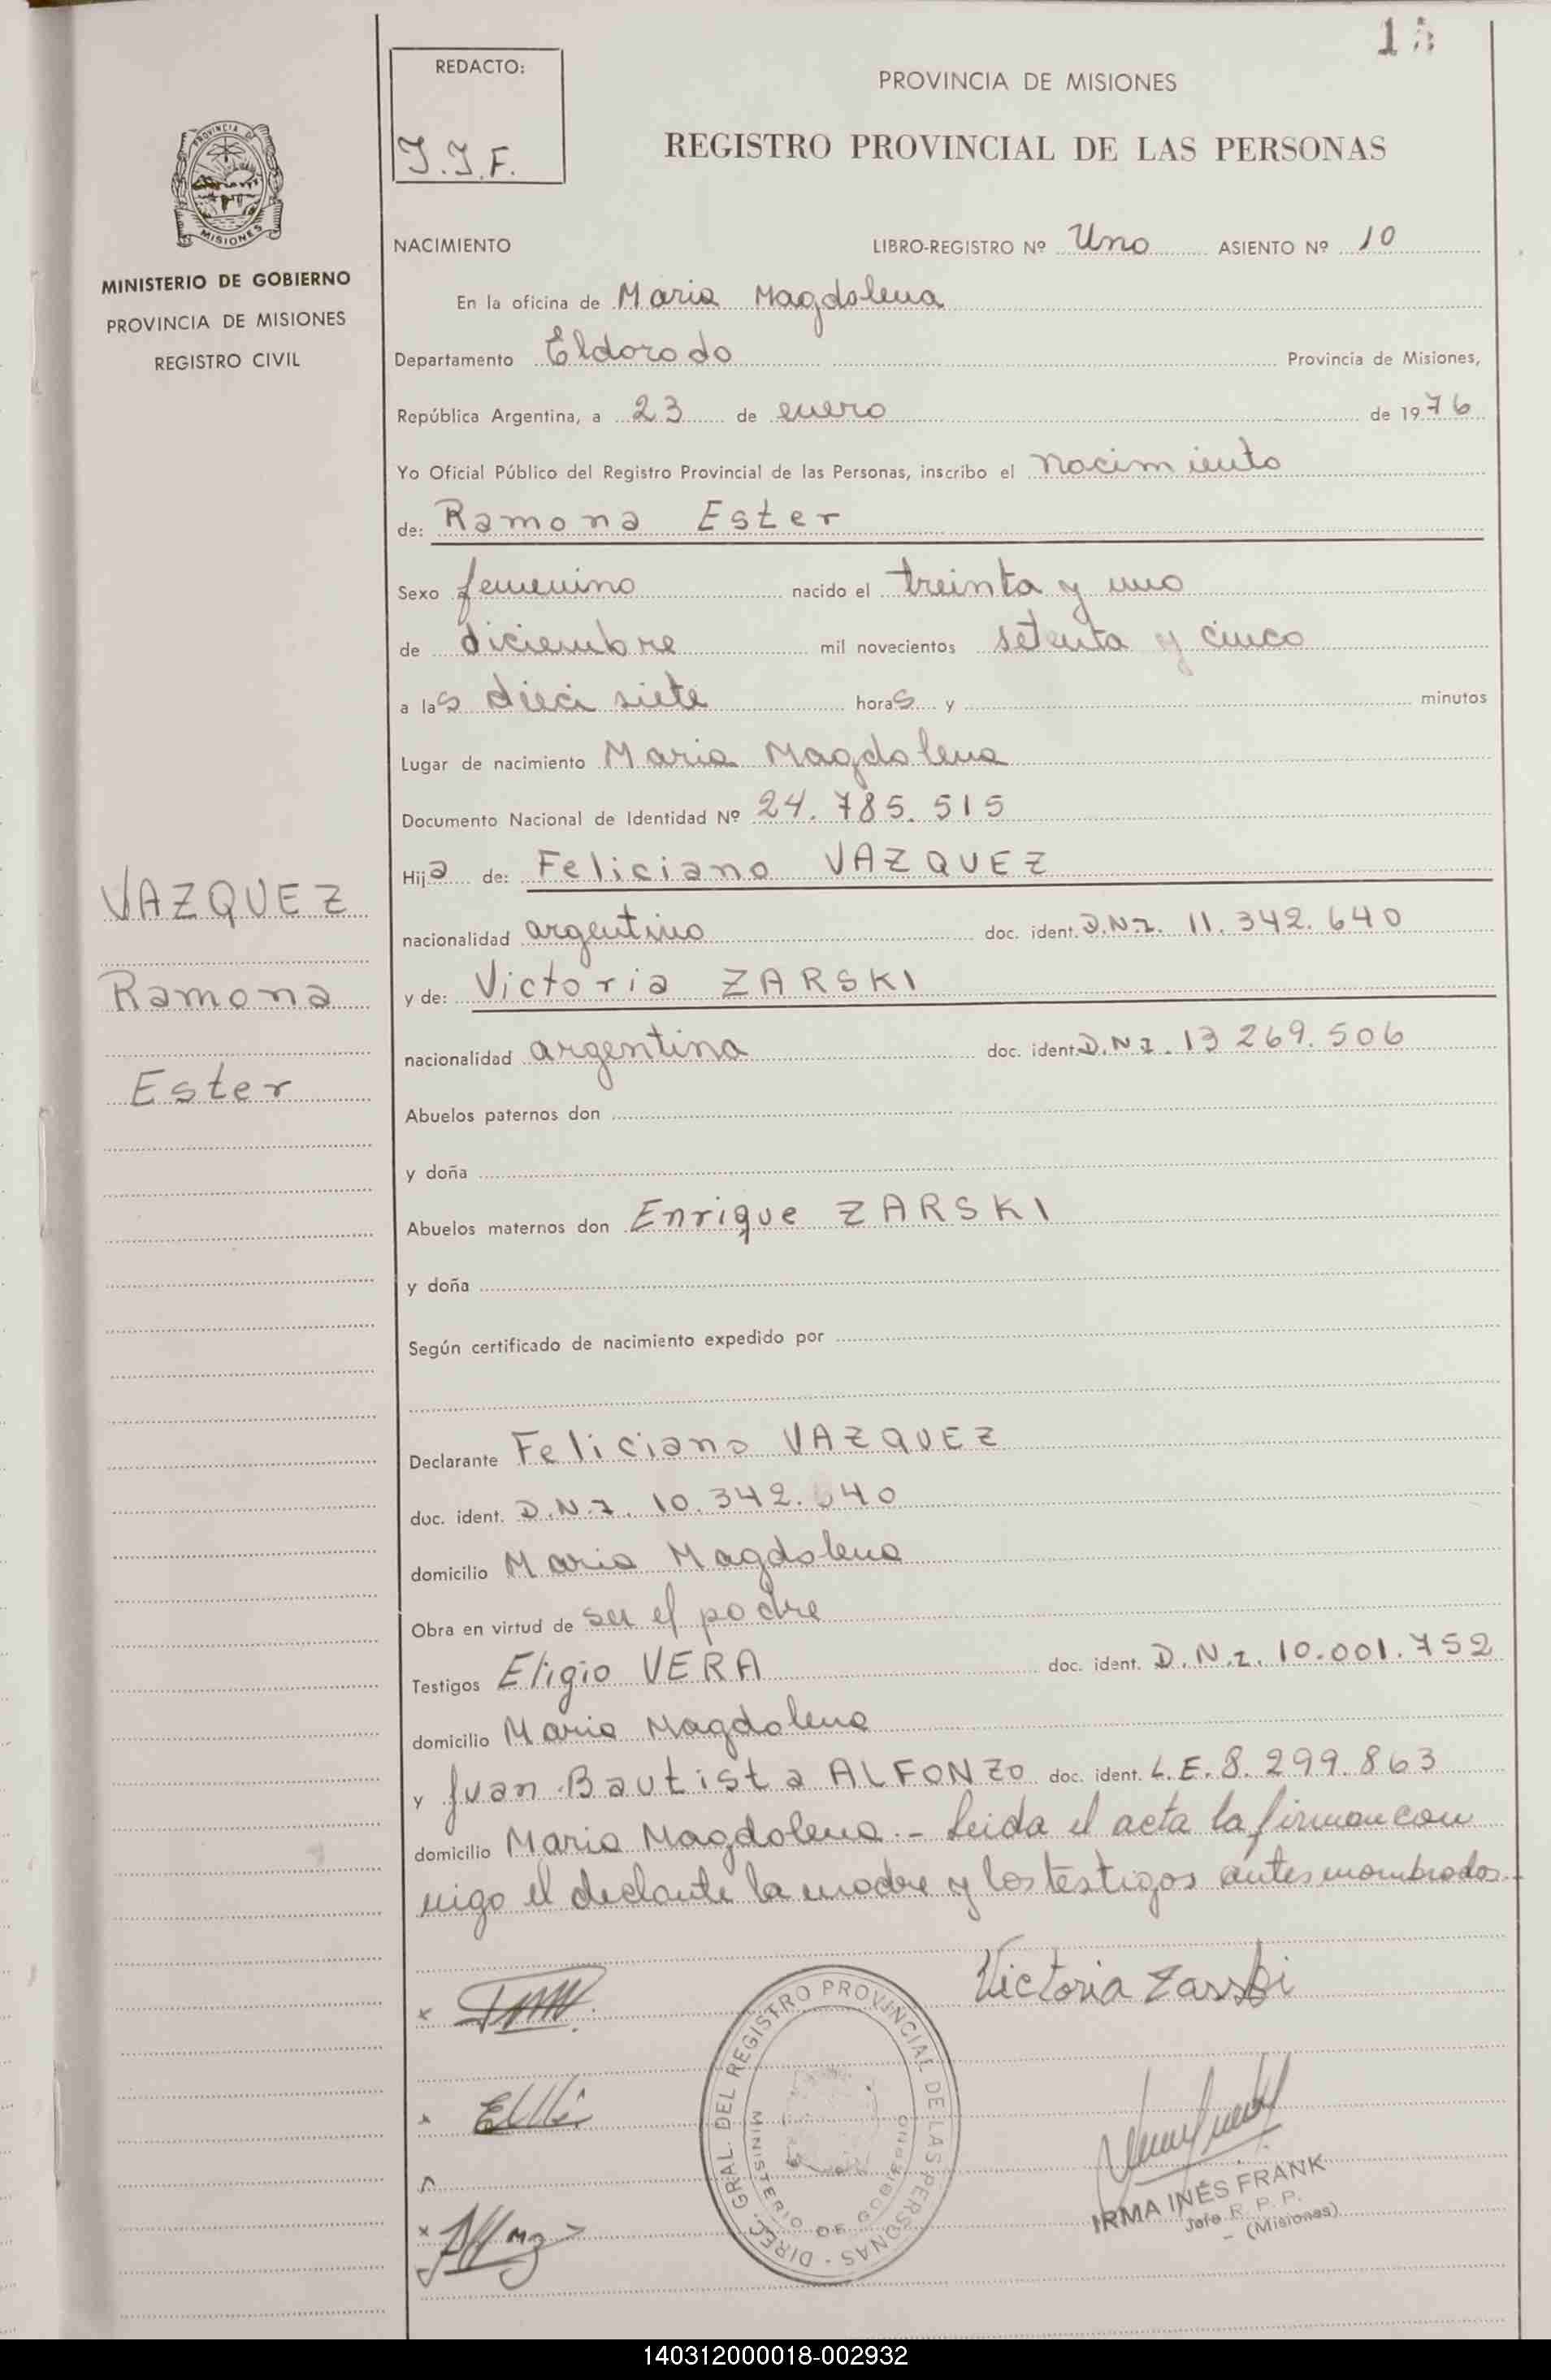 15
REDACTO:
J.J.F.
PROVINCIA DE MISIONES
REGISTRO PROVINCIAL DE LAS PERSONAS
PROVINCIA DE
MISIONES
MINISTERIO DE GOBIERNO
PROVINCIA DE MISIONES
REGISTRO CIVIL
VAZQUEZ
Ramona
Ester
NACIMIENTO LIBRO-REGISTRO Nº Uno ASIENTO Nº 10
En la oficina de Maria Magdalena
Departamento Eldorado Provincia de Misiones,
República Argentina, a 23 de enero de 1976
Yo Oficial Público del Registro Provincial de las Personas, inscribo el nacimiento
de: Ramona Ester
Sexo femenino nacido el treinta y uno
de diciembre mil novecientos setenta y cinco
a las dieci siete horas y minutos
Lugar de nacimiento Maria Magdalena
Documento Nacional de Identidad Nº 24.785.515
Hija de: Feliciano VAZQUEZ
nacionalidad argentino doc. ident. D.N.I. 11.342.640
y de: Victoria ZARSKI
nacionalidad argentina doc. ident. D.N.I. 13 269.506
Abuelos paternos don
y doña
Abuelos maternos don Enrique ZARSKI
y doña
Según certificado de nacimiento expedido por
Declarante Feliciano VAZQUEZ
doc. ident. D.N.I. 10.342.640
domicilio Maria Magdalena
Obra en virtud de ser el padre
Testigos Eligio VERA doc. ident. D.N.I. 10.001.752
domicilio Maria Magdalena
y Juan Bautista ALFONZO doc. ident. L.E. 8.299.863
domicilio Maria Magdalena.- Leida el acta la firman con
migo el declante la madre y los testigos antes nombrados.-
Victoria Zarski
DIREC. GRAL. DEL REGISTRO PROVINCIAL DE LAS PERSONAS
MINISTERIO DE GOBIERNO
IRMA INÉS FRANK
Jefe R. P. P.
- (Misiones)
140312000018-002932